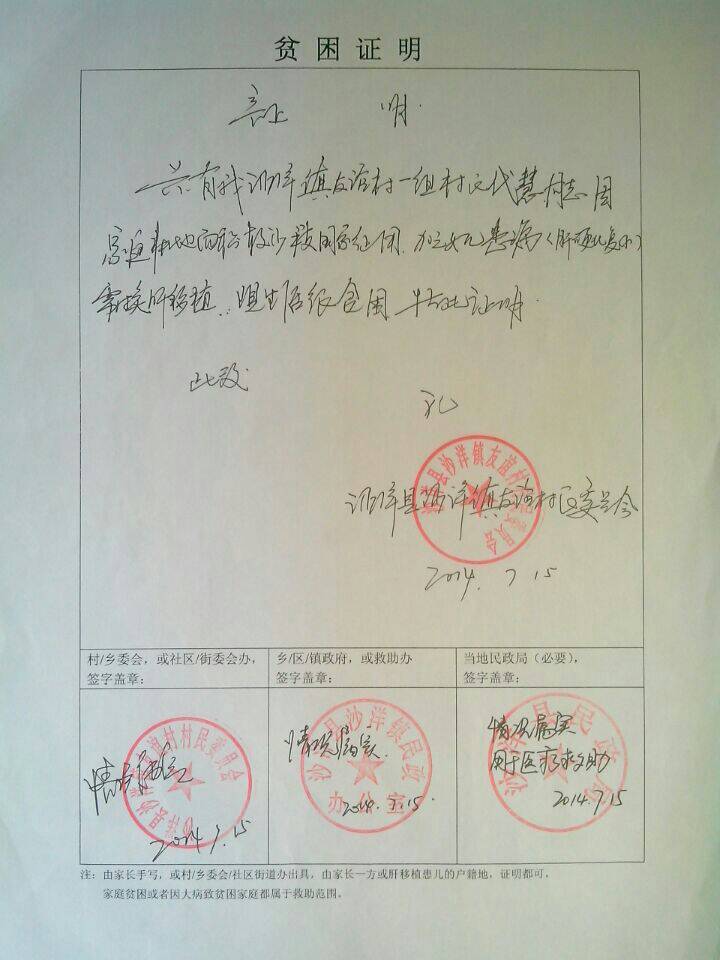 贫困证明
证 明
兹有我沙洋镇友谊村一组村民代慧同志因
家庭耕地面积较少
患病
需换肝移植 特此证明.
此致
礼
沙洋县沙洋镇友谊村
沙洋县沙洋镇友谊村委员会
2014.7.15
村/乡委会，或社区/街委会办，签字盖章：
乡/区/镇政府，或救助办签字盖章：
当地民政局（必要），签字盖章：
情况属实
村民委员会
2014.7.15
情况属实
沙洋县沙洋镇民政
办公室
2014.7.15
情况属实
用于医疗救助
沙洋县民政局
2014.7.15
注：由家长手写，或村/乡委会/社区街道办出具，由家长一方或肝移植患儿的户籍地，证明都可。
家庭贫困或者因大病致贫困家庭都属于救助范围。